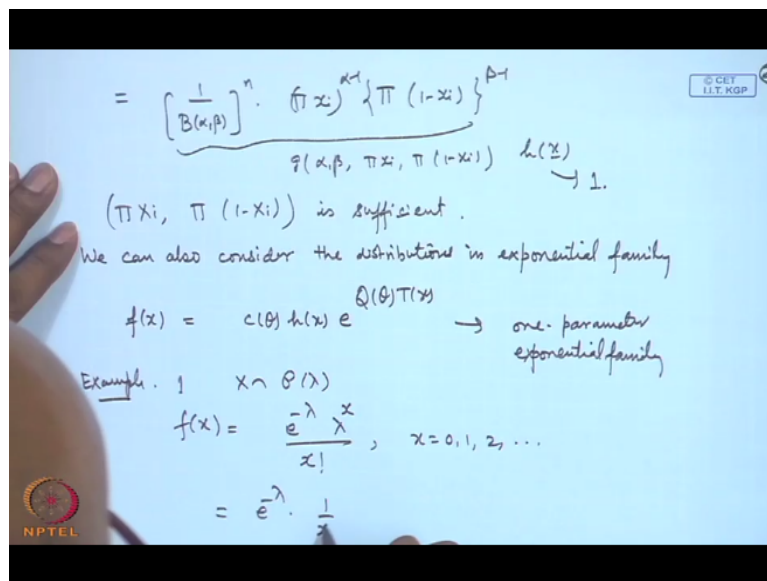 = [1/B(α,β)]ⁿ · (π xi)^(α-1) {π (1-xi)}^(β-1)
© CET
I.I.T. KGP
g(α,β, πxi, π(1-xi)) h(x) → 1.
(πXi, π(1-Xi)) is sufficient.
We can also consider the distributions in exponential family
f(x) = c(θ) h(x) e^(Q(θ)T(x)) → one-parameter
exponential family
Example. 1 X ~ P(λ)
f(x) = e^(-λ) λ^x / x! , x = 0, 1, 2, ...
= e^(-λ) · 1/x
NPTEL